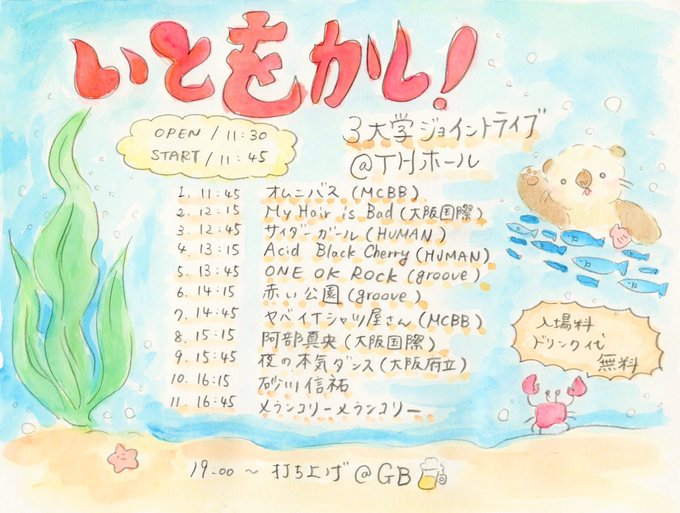 いとをかし!
OPEN / 11:30
START / 11:45
3大学ジョイントライブ
@THホール
1. 11:45 オムニバス (MCBB)
2. 12:15 My Hair is Bad (大阪国際)
3. 12:45 サイダーガール (HUMAN)
4. 13:15 Acid Black Cherry (HUMAN)
5. 13:45 ONE OK ROCK (groove)
6. 14:15 赤い公園 (groove)
7. 14:45 ヤバイTシャツ屋さん (MCBB)
8. 15:15 阿部真央 (大阪国際)
9. 15:45 夜の本気ダンス (大阪府立)
10. 16:15 砂川信祐
11. 16:45 メランコリーメランコリー
入場料
ドリンク代
無料
19:00 ~ 打ち上げ @GB